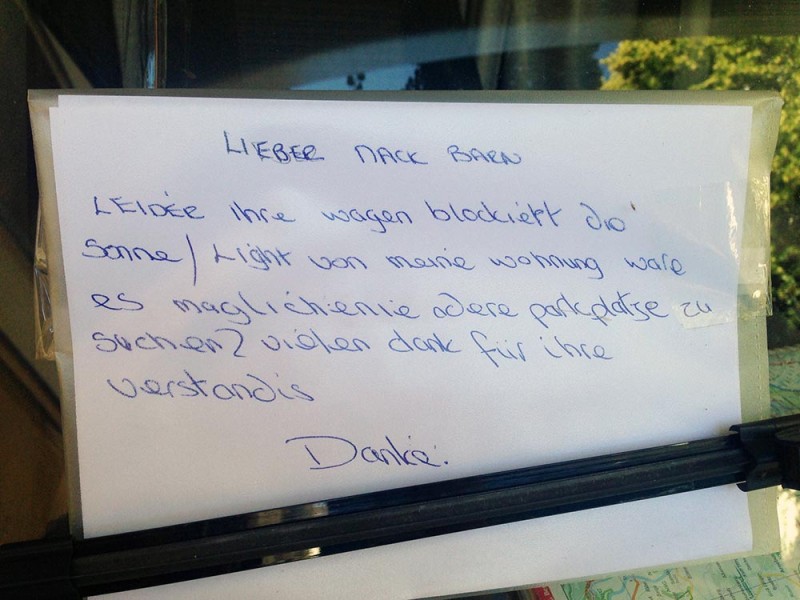 LIEBER NACK BARN
LEIDER ihre wagen blockiert die
Sonne/Light von meine wohnung ware
es maglich eine odere parkplatse zu
suchen? vielen dank für ihre
verstandis
Danke.